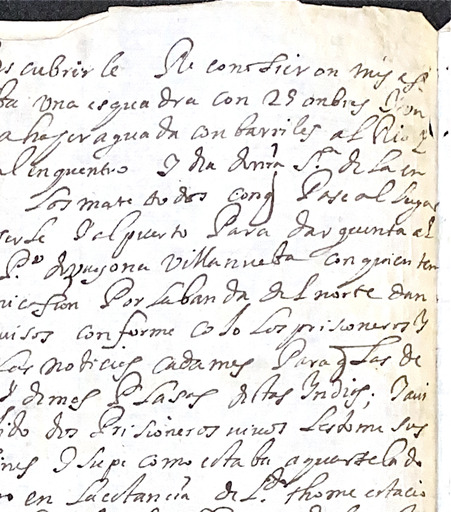 scubrirle Reconosieron mis es
ba una esquadra con 25 onbres
a haser aguada con barriles al Rio
al enquentro I dia de nra Sra de la en
los mate todos conq Pase al lugar
serle I al puerto Para dar quenta al
Po de vayona Villanueba con quien ten
nicasion Por la banda del norte dan
uisos conforme cojo los prisioneros I
las noticias cada mes Para q las de
I demas Plasas destas Indias; I aui
ido dos Prisioneros uiuos les tome sus
ones I supe como estaba aquartelado
en la estancia de Ldo thome estacio